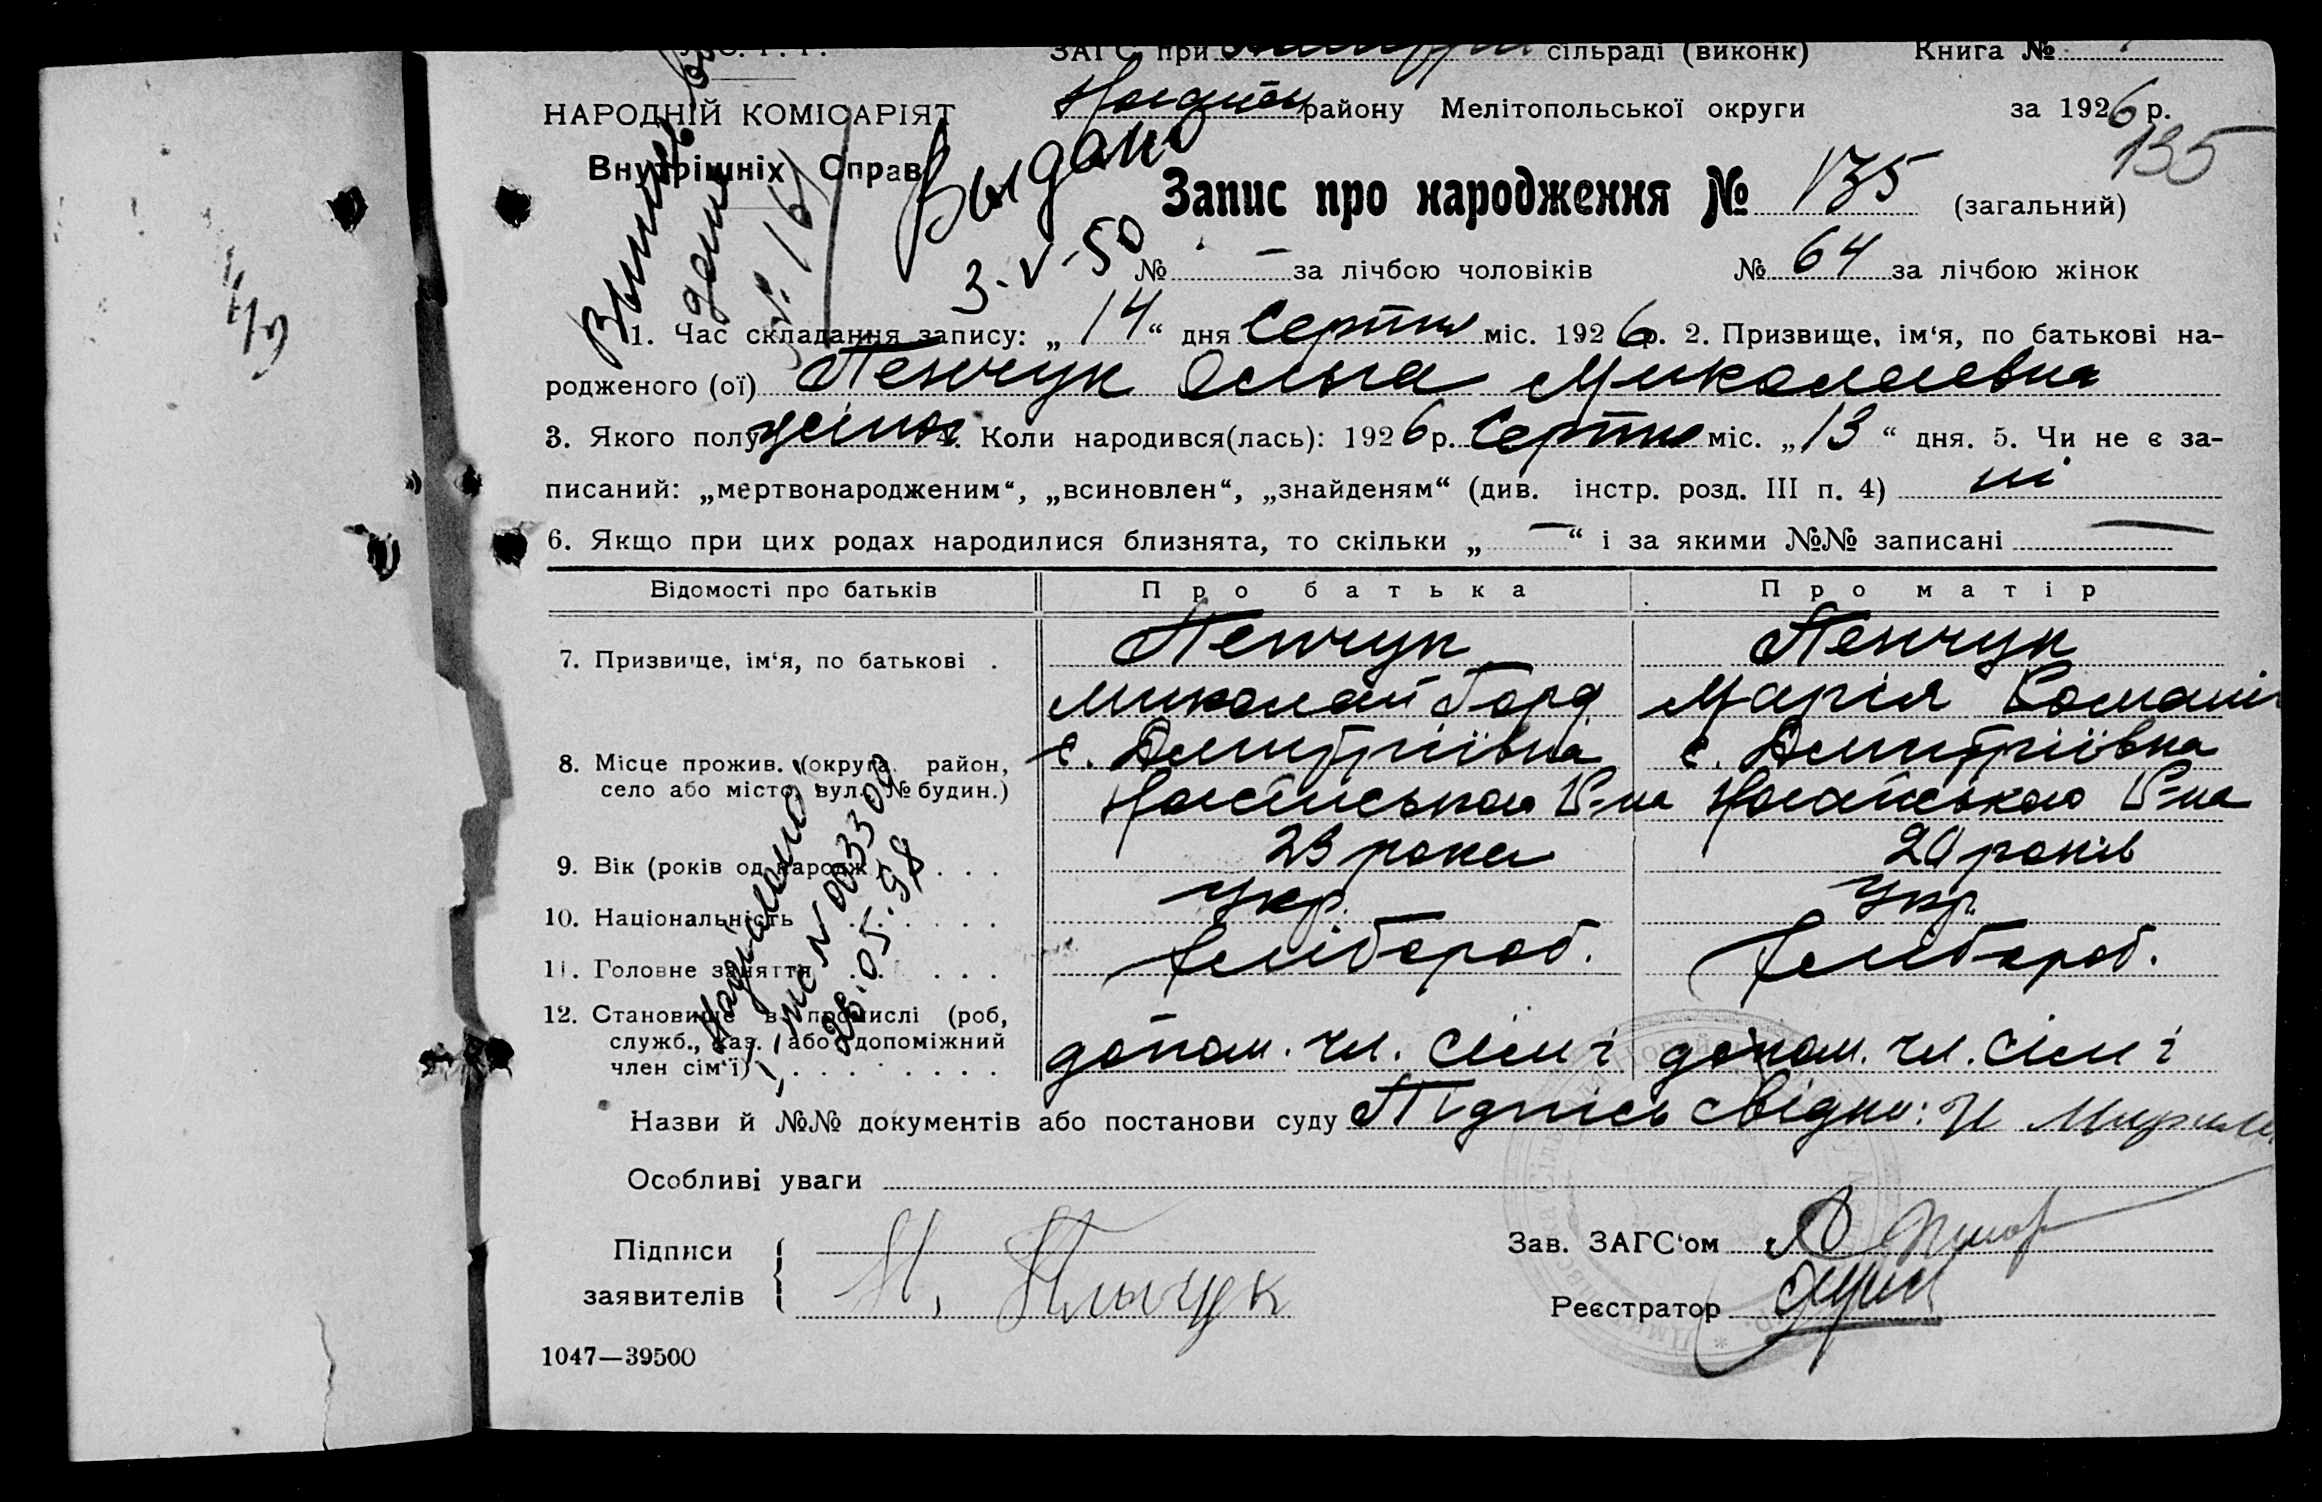 ЗАГС при сільраді (виконк) Книга №
НАРОДНІЙ КОМІСАРІЯТ
району Мелітопольської округи за 1926 р.
135
Внутрішніх Справ
Выдано
3-V-50
Запис про народження № 135 (загальний)
№ — за лічбою чоловіків № 64 за лічбою жінок
1. Час складання запису: „14“ дня Серпня міс. 1926 р. 2. Призвище, ім‘я, по батькові на-
родженого (ої) Пенчук Ольга Миколаевна
3. Якого полу жіноч. 4. Коли народився(лась): 1926 р. Серпня міс. „13“ дня. 5. Чи не є за-
писаний: „мертвонародженим“, „всиновлен“, „знайденям“ (див. інстр. розд. III п. 4) ні
6. Якщо при цих родах народилися близнята, то скільки „—“ і за якими №№ записані —
Відомості про батьків Про батька Про матір
7. Призвище, ім‘я, по батькові . Пенчук Пенчук
Миколай Горд Марія Романів
8. Місце прожив. (округа район, с. Дмитріївка с. Дмитріївка
село або місто, вул. № будин.) Ногайського Р-на Ногайського Р-на
9. Вік (років од народж.) 23 роки 20 років
10. Національність Укр. Укр.
11. Головне заняття Хлібороб. Хлібороб.
12. Становище в промислі (роб,
служб., хаз. або допоміжний допом. чл. сім‘ї допом. чл. сім‘ї
член сім‘ї)
Надіслано
№ 003309
28.05.98
Назви й №№ документів або постанови суду Підпісь свідків: И
Особливі уваги
Підписи
заявителів Н. Пенчук
Зав. ЗАГС‘ом
Реєстратор
1047—39500